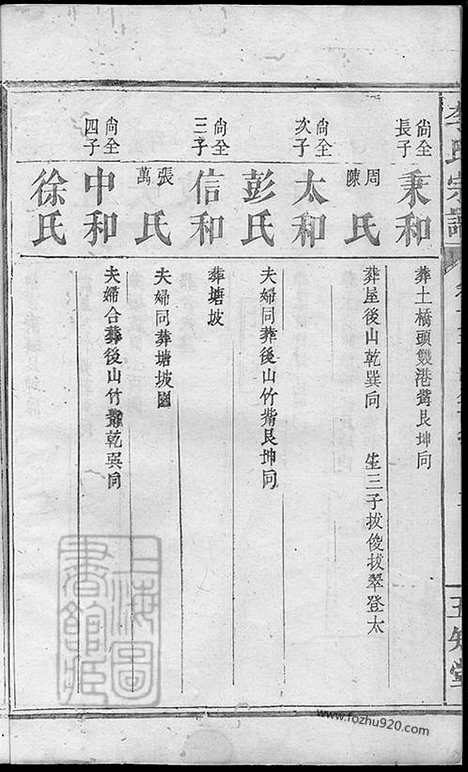 李氏宗譜
五知堂
尚全長子 秉和 葬土橋頭雙港觜艮坤向
周陳氏 葬屋後山乾巽向 生三子拔俊拔翠登太
尚全次子 太和
彭氏 夫婦同葬後山竹觜艮坤向
尚全三子 信和 葬塘坡
張萬氏 夫婦同葬塘坡園
尚全四子 中和 夫婦合葬後山竹乾巽向
徐氏
上海圖
書館藏
www.fozhu920.com